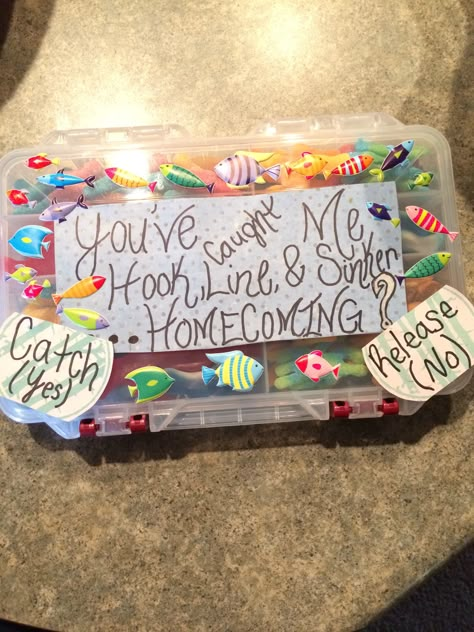 You've Caught Me
Hook, Line, & Sinker
...HOMECOMING?
Catch
(Yes)
Release
(No)